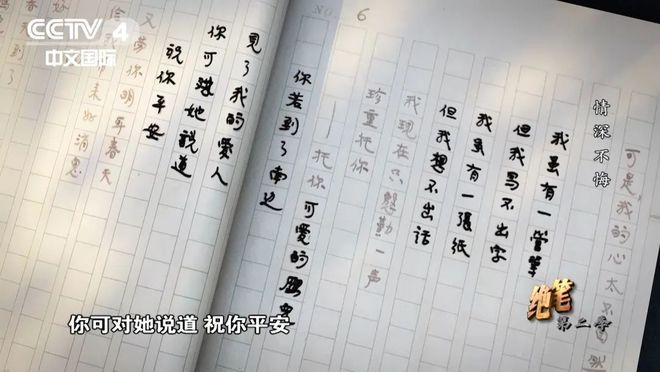 CCTV 4
中文国际
NO. 6
情深不悔
可是,我的心太不自然
我虽有一管筆
但我写不出字
我虽有一張紙
但我想不出话
我现在只慇勤一声
珍重托你
托你可爱的
你若到了南边
見了我的爱人
你可对她説道
祝你平安
你明年春天
来好消息
绝笔
第二季
你可对她说道 祝你平安